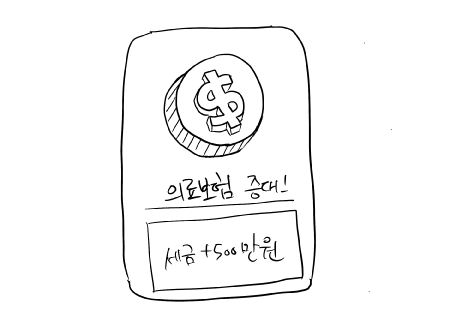 $
의료보험 증대!
세금 +500만원